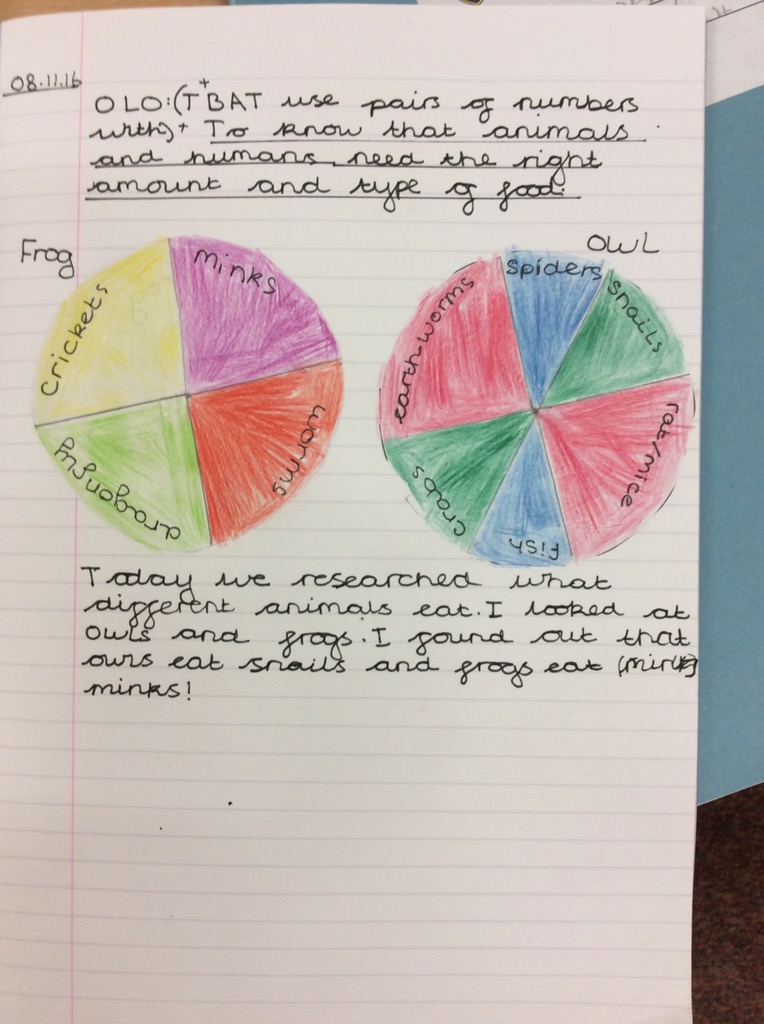 08.11.16
OLO:(T+BAT use pairs of numbers
with)+ To know that animals
and humans need the right
amount and type of food.
Frog
OWL
minks
crickets
worms
dragonfly
spiders
snails
earthworms
rat/mice
crabs
fish
Today we researched what
different animals eat. I looked at
owls and frogs. I found out that
ours eat snails and frogs eat (mink)
minks!